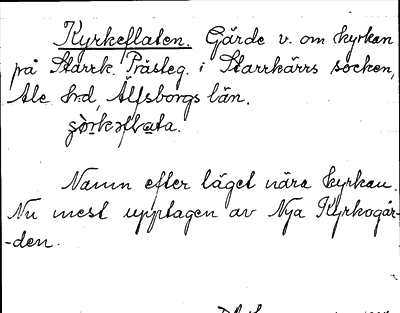 Kyrkeflaten. Gärde v. om kyrkan
på Starrk. Prästeg. i Starrkärrs socken,
Ale hd, Älfsborgs län.
Namn efter läget nära kyrkan.
Nu mest upptagen av Nya Kyrkogår-
-den.